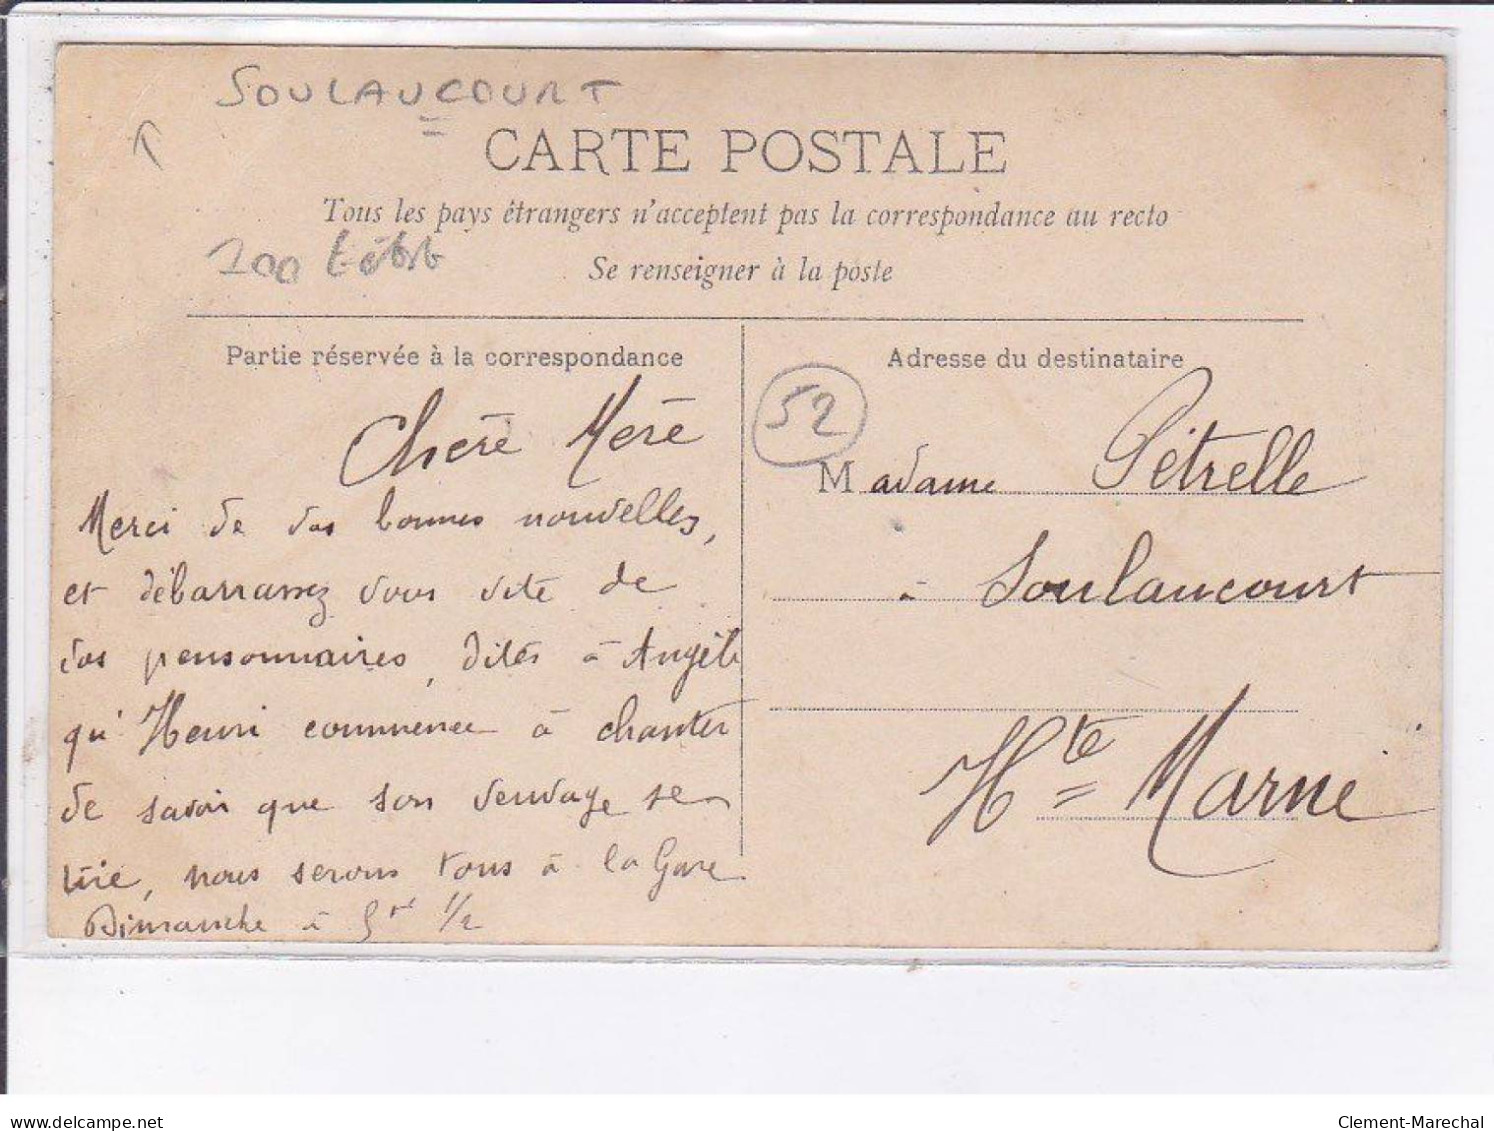 SOULAUCOURT
CARTE POSTALE
Tous les pays étrangers n'acceptent pas la correspondance au recto
Se renseigner à la poste
200
Partie réservée à la correspondance
Chère Mère
Merci de vos bonnes nouvelles,
et débarrassez vous vite de
vos pensonnaires, dites à Angèle
qu'Henri commence à chanter
de savoir que son veuvage se
tire, nous serons tous à la Gare
Dimanche à 5 rs 1/2
Adresse du destinataire
52
Madame Pétrelle
à Soulaucourt
Hte Marne
delcampe.net
Clement-Marechal